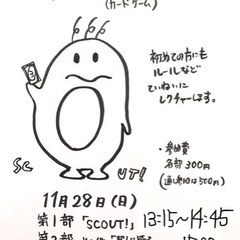 (カードゲーム)
初めての方にも
ルールなど
ていねいに
レクチャーします。
・参加費
各部300円
(通し参加は500円)
SCOUT!
11月28日(日)
第1部「SCOUT!」13:15~14:45